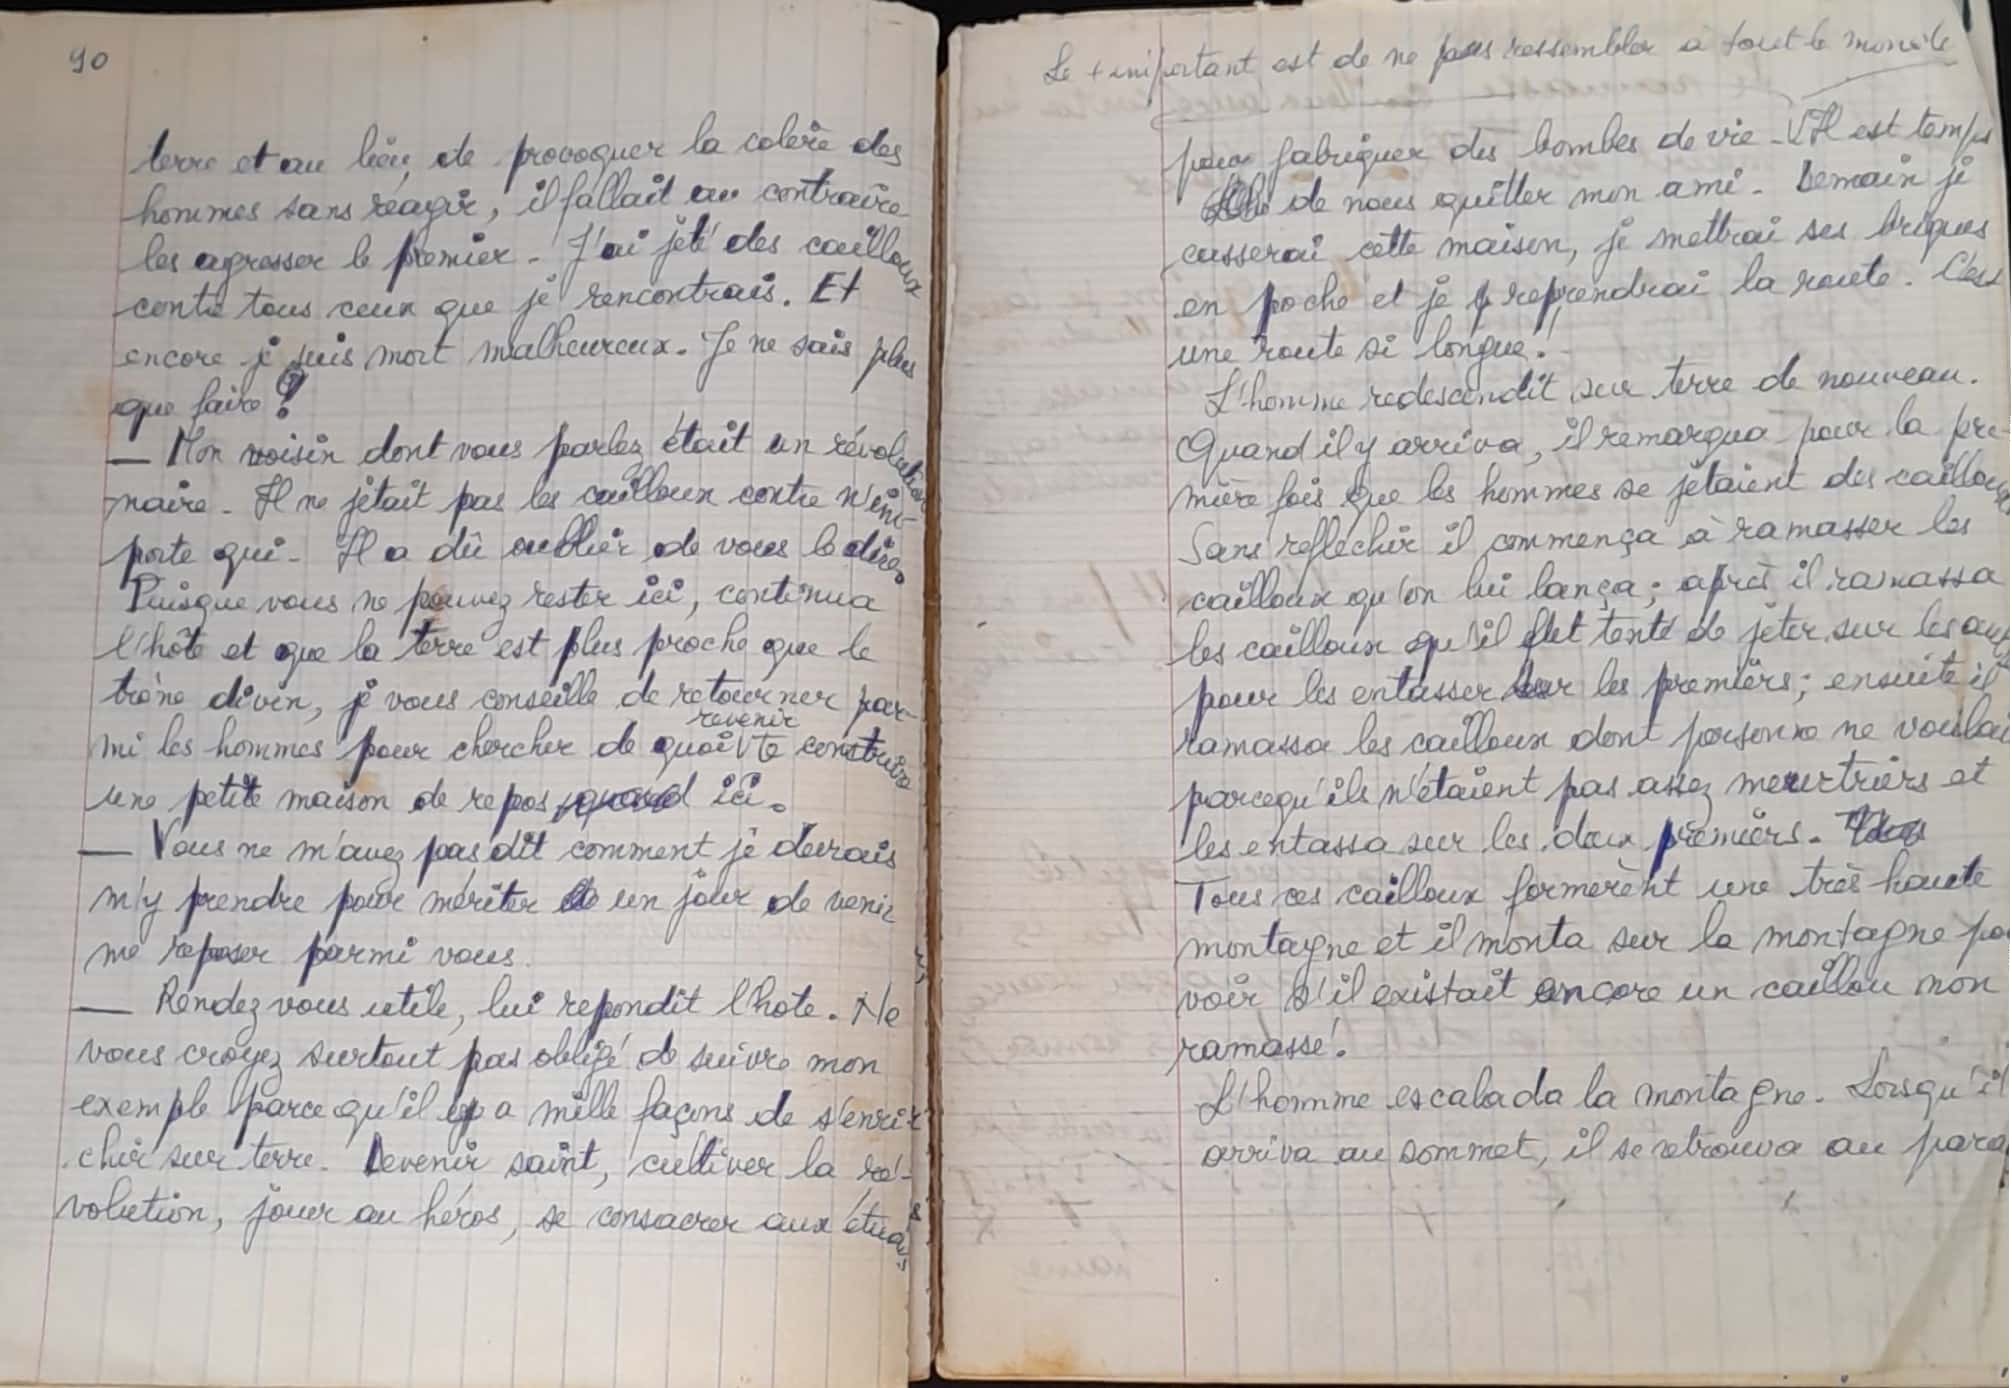 90
terre et au lieu, de provoquer la colère des
hommes sans réagir, il fallait au contraire
les agresser le premier - J'ai jeté des cailloux
contre tous ceux que je rencontrais. Et
encore je suis mort malheureux. Je ne sais plus
que faire ?
— Mon voisin dont vous parlez était un révolution
naire - Il ne jetait pas les cailloux contre n'im-
porte qui - Il a dû oublier de vous le dire.
Puisque vous ne pouvez rester ici, continua
l'hôte et que la terre est plus proche que le
trône divin, je vous conseille de retourner par-
revenir
mi les hommes pour chercher de quoi V te construire
une petite maison de repos quand ici.
— Vous ne m'avez pas dit comment je devrais
m'y prendre pour mériter un jour de venir
me reposer parmi vous.
— Rendez vous utile, lui repondit l'hote. Ne
vous croyez surtout pas obligé de suivre mon
exemple parce qu'il y a mille façons de s'enri-
chir sur terre. Devenir saint, cultiver la ré-
volution, jouer au héros, se consacrer aux études
Le + important est de ne pas ressembler à tout le monde
pour fabriquer des bombes de vie - V Il est temps
de nous quitter mon ami - Demain je
casserai cette maison, je mettrai ses briques
en poche et je reprendrai la route. C'est
une route si longue !
L'homme redescendit sur terre de nouveau.
Quand il y arriva, il remarqua pour la pre-
mière fois que les hommes se jetaient des cailloux
Sans reflechir il commença à ramasser les
cailloux qu'on lui lança ; après il ramassa
les cailloux qu'il fut tenté de jeter sur les
pour les entasser sur les premiers ; ensuite il
ramassa les cailloux dont personne ne voulai
parcequ'ils n'étaient pas assez meurtriers et
les entassa sur les deux premiers.
Tous ces cailloux formerent une très haute
montagne et il monta sur la montagne po
voir s'il existait encore un caillou non
ramassé !
L'homme escalada la montagne. Lorsqu'il
arriva au sommet, il se retrouva au para